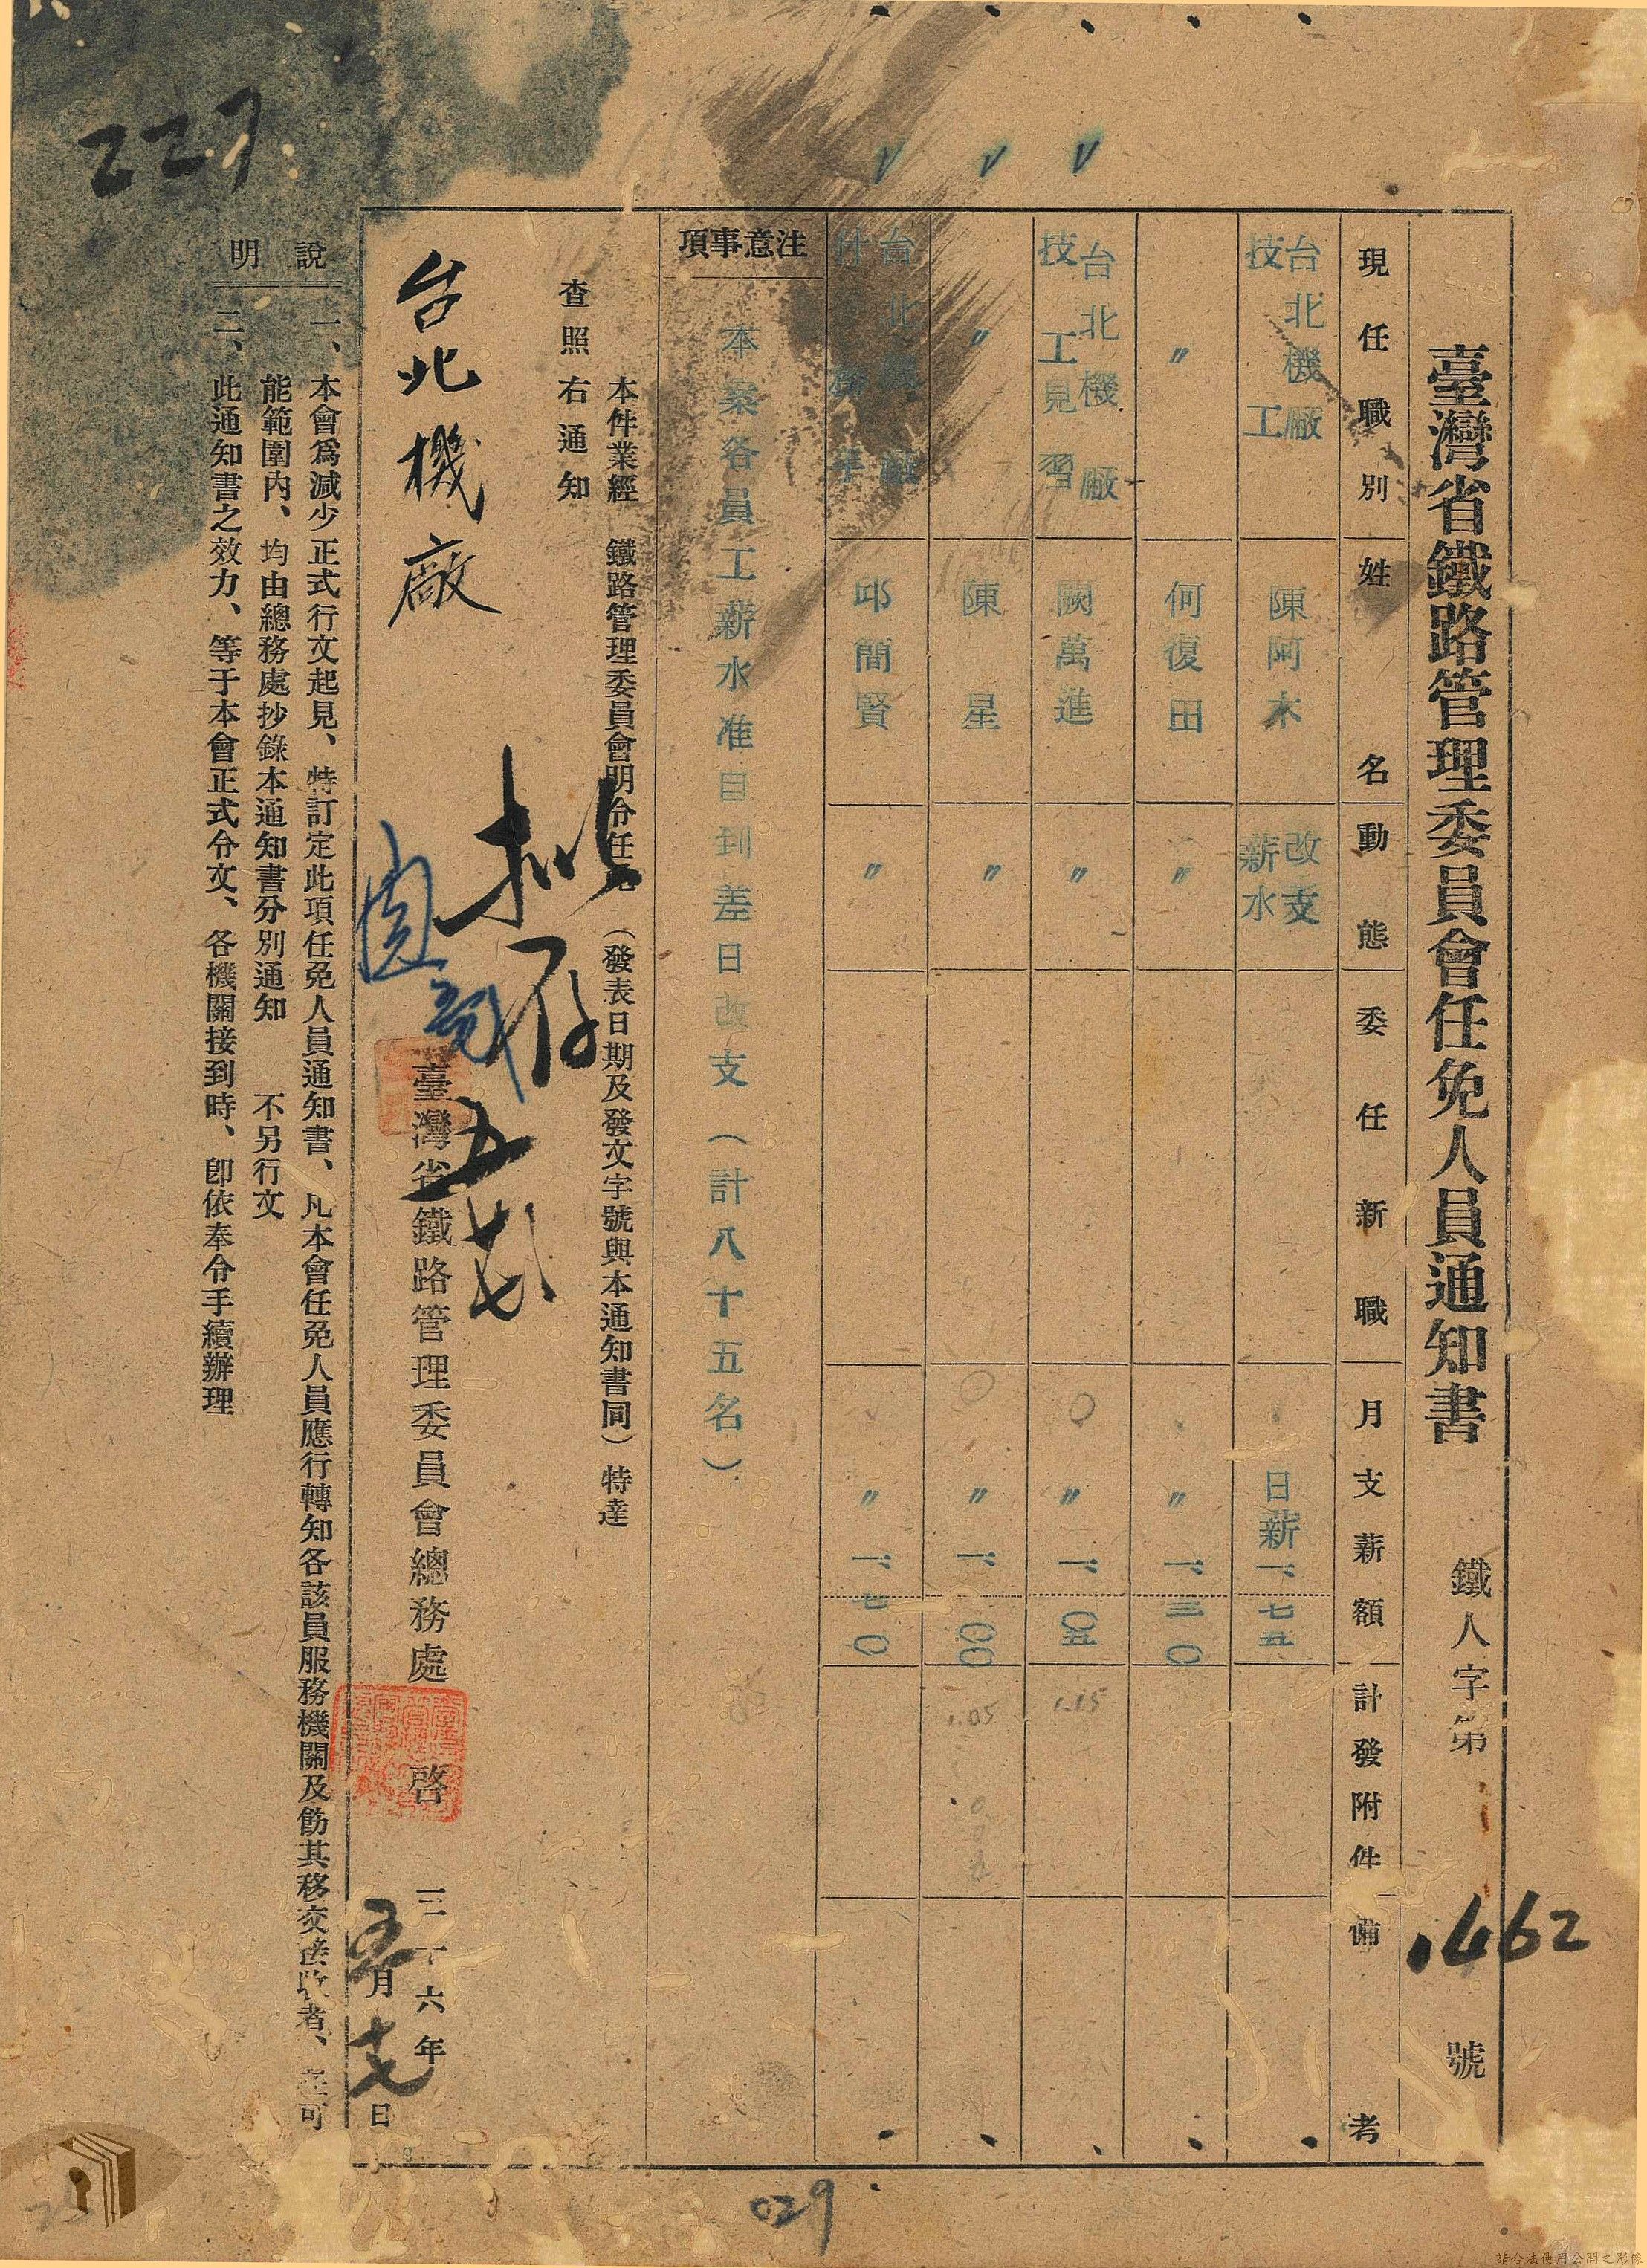 臺灣省鐵路管理委員會任免人員通知書 鐵人字第 1462 號
現任職別 姓名 動態 委任新職 月支薪額 計發附件 備考
台北機廠技工 陳阿木 改支薪水 日薪 一、七五
〃 何復田 〃 〃 一、三〇
台北機廠技工見習 闕萬進 〃 〃 一、〇五 1.15
〃 陳星 〃 〃 一、〇〇 1.05
台北機廠什務手 邱簡賢 〃 〃 一、七〇
注意事項
本案各員工薪水准自到差日改支(計八十五名)
本件業經 鐵路管理委員會明令任免(發表日期及發文字號與本通知書同)特達
查照 右通知
台北機廠
臺灣省鐵路管理委員會總務處 啓 三十六年
五月 日
說明
一、本會爲減少正式行文起見、特訂定此項任免人員通知書、凡本會任免人員應行轉知各該員服務機關及飭其移交接收者、 可
能範圍內、均由總務處抄錄本通知書分別通知 不另行文
二、此通知書之效力、等于本會正式令文、各機關接到時、卽依奉令手續辦理
227
029
請合法使用公開之影像